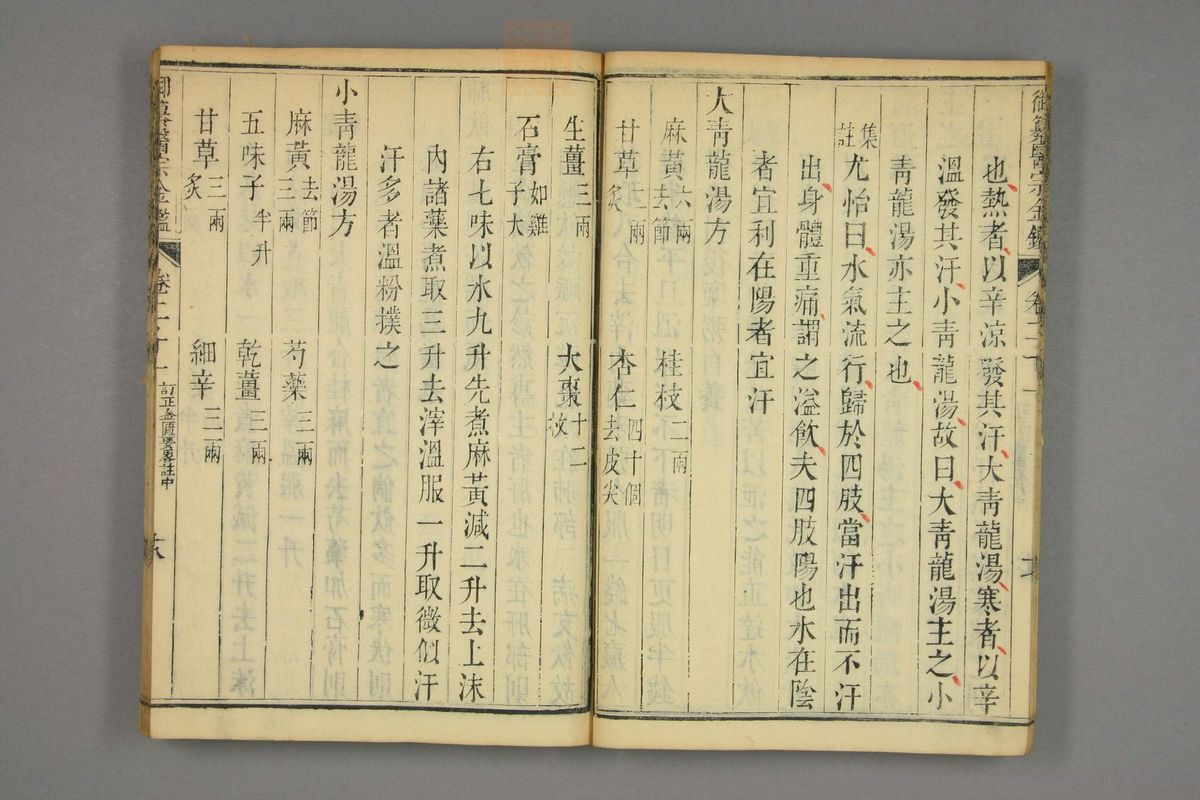 御纂醫宗金鑑
卷二十一
也熱者以辛凉發其汗大靑龍湯寒者以辛
溫發其汗小靑龍湯故曰大靑龍湯主之小
靑龍湯亦主之也
集註
尤怡曰水氣流行歸於四肢當汗出而不汗
出身體重痛謂之溢飮夫四肢陽也水在陰
者宜利在陽者宜汗
大靑龍湯方
麻黃六兩去節 桂枝二兩
甘草二兩炙 杏仁四十個去皮尖
生薑三兩 大棗十二枚
石膏如雞子大
右七味以水九升先煮麻黃減二升去上沫
內諸藥煮取三升去滓溫服一升取微似汗
汗多者溫粉撲之
小靑龍湯方
麻黃去節三兩 芍藥三兩
五味子半升 乾薑三兩
甘草三兩炙 細辛三兩
御纂醫宗金鑑
卷二十一
訂正金匱要畧註中